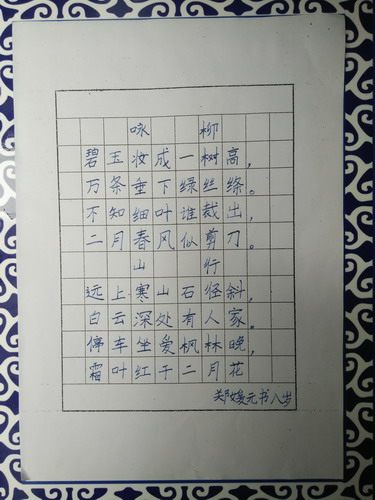 咏柳
碧玉妆成一树高，
万条垂下绿丝绦。
不知细叶谁裁出，
二月春风似剪刀。
山行
远上寒山石径斜，
白云深处有人家。
停车坐爱枫林晚，
霜叶红于二月花
郑媛元书八岁